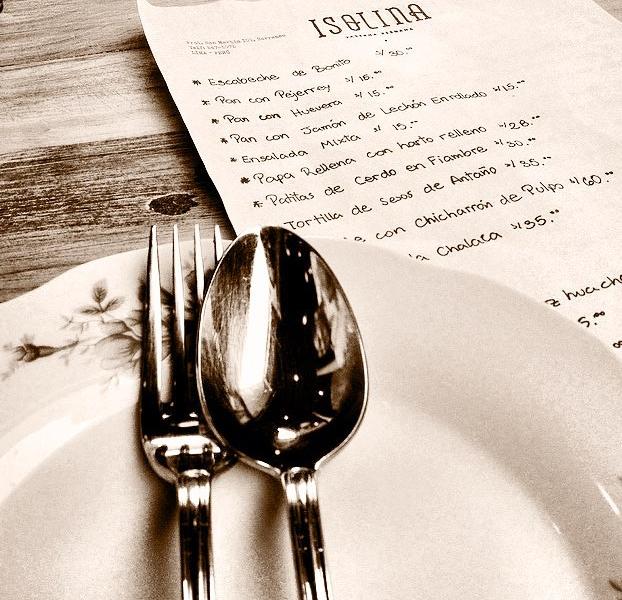 ISOLINA
TABERNA PERUANA
LIMA - PERÚ
* Escabeche de Bonito s/30.°°
* Pan con Pejerrey s/15.°°
* Pan con Huevera s/15.°°
* Pan con Jamón de Lechón Enrollado s/15.°°
* Ensalada Mixta s/15.°°
* Papa Rellena con harto relleno s/28.°°
* Patitas de Cerdo en Fiambre s/30.°°
Tortilla de sesos de Antaño s/35.°°
con Chicharrón de Pulpo s/60.°°
la Chalaca s/35.°°
z huacho
5.°°